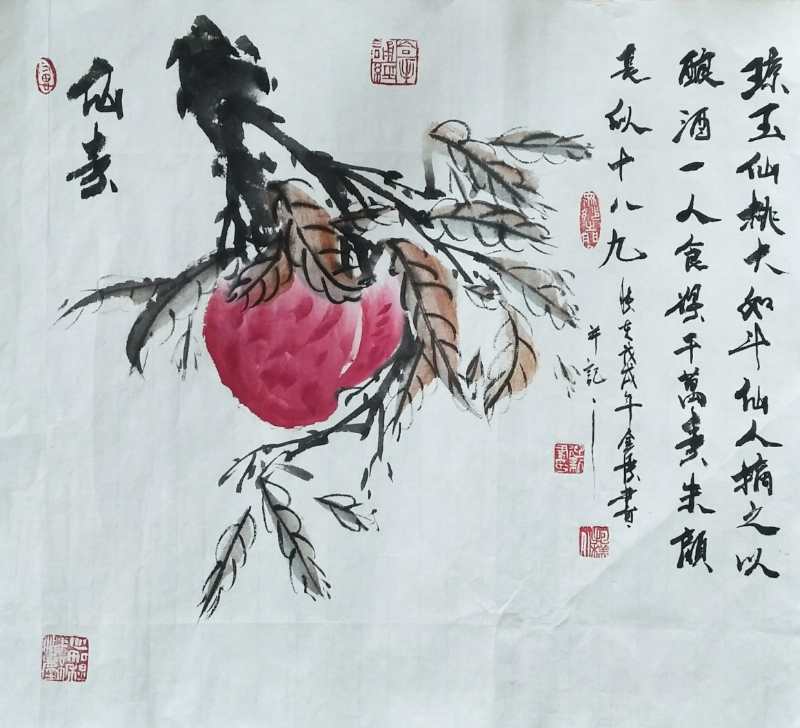 琼玉仙桃大如斗仙人摘之以
酿酒一人食得千萬寿朱颜
长似十八九
戊戌年金秋書
并記
仙寿